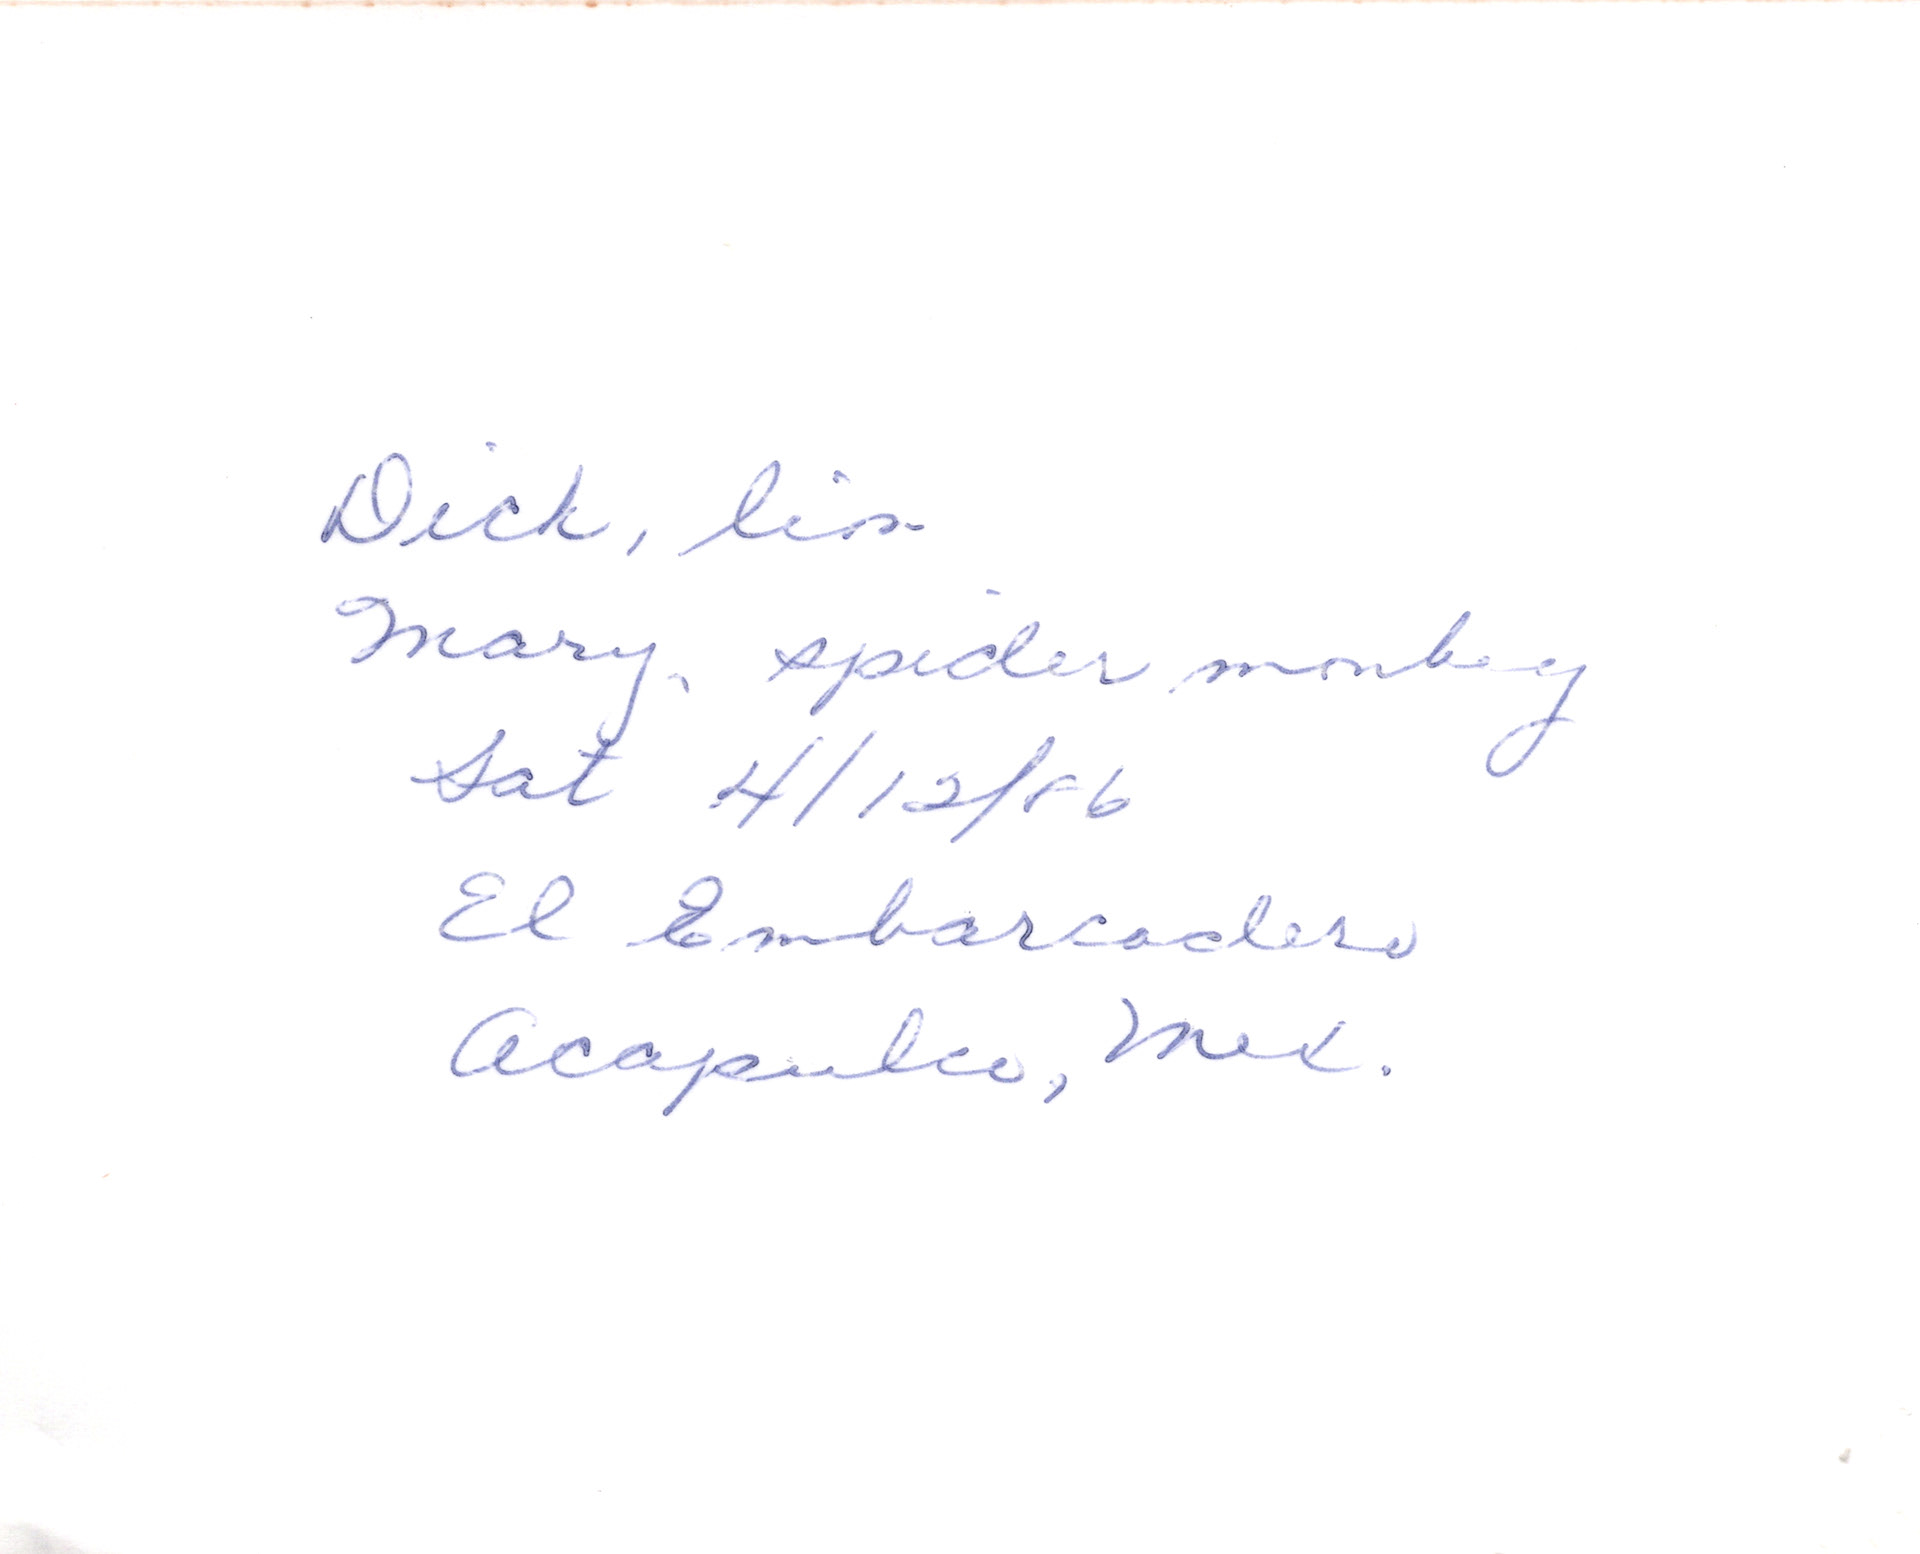 Dick, lion
Mary, spider monkey
Sat 4/12/86
El Embarcadero
Acapulco, Mex.